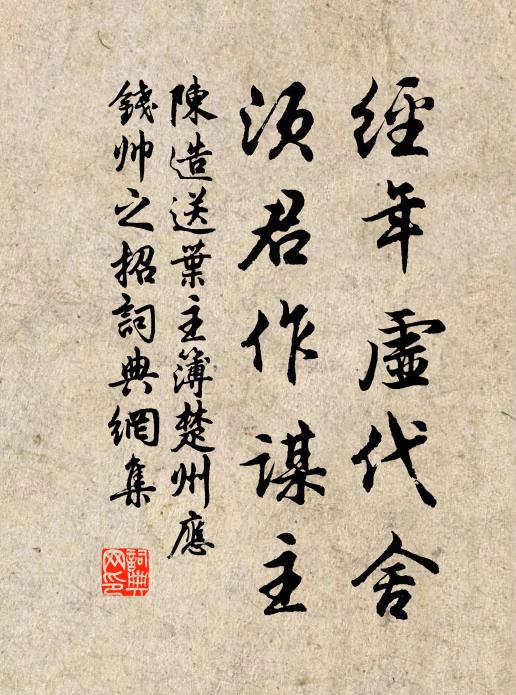 經年虛代舍
須君作謀主
陳造送葉主簿楚州應
錢帅之招詞典網集
詞典网印